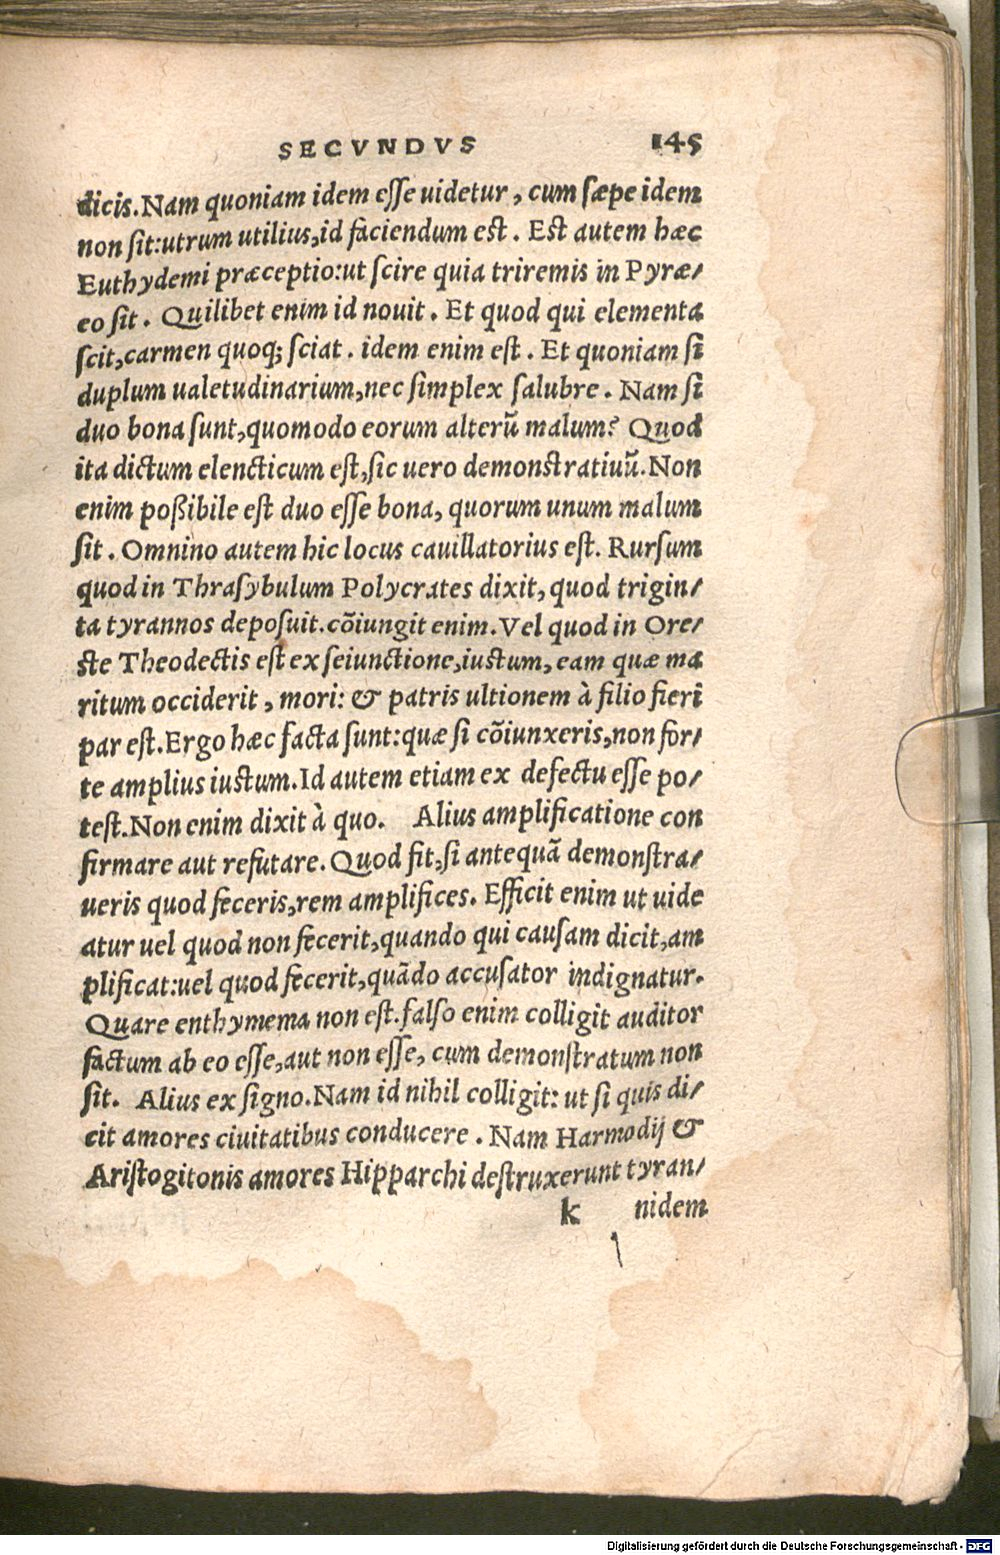 SECVNDVS 145
dicis.Nam quoniam idem esse uidetur, cum sæpe idem
non sit:utrum utilius,id faciendum est. Est autem hæc
Euthydemi præceptio:ut scire quia triremis in Pyræ/
eo sit. Quilibet enim id nouit. Et quod qui elementa
scit,carmen quoq; sciat. idem enim est. Et quoniam si
duplum ualetudinarium,nec simplex salubre. Nam si
duo bona sunt,quomodo eorum alterũ malum? Quod
ita dictum elencticum est,sic uero demonstratiuũ.Non
enim poßibile est duo esse bona, quorum unum malum
sit. Omnino autem hic locus cauillatorius est. Rursum
quod in Thrasybulum Polycrates dixit, quod trigin/
ta tyrannos deposuit.cõiungit enim.Vel quod in Ore/
ste Theodectis est ex seiunctione,iustum, eam quæ ma
ritum occiderit, mori: & patris ultionem à filio fieri
par est.Ergo hæc facta sunt:quæ si cõiunxeris,non for/
te amplius iustum.Id autem etiam ex defectu esse po/
test.Non enim dixit à quo. Alius amplificatione con
firmare aut refutare. Quod fit,si antequã demonstra/
ueris quod feceris,rem amplifices. Efficit enim ut uide
atur uel quod non fecerit,quando qui causam dicit,am
plificat:uel quod fecerit,quãdo accusator indignatur.
Quare enthymema non est.falso enim colligit auditor
factum ab eo esse,aut non esse, cum demonstratum non
sit. Alius ex signo.Nam id nihil colligit: ut si quis di/
cit amores ciuitatibus conducere. Nam Harmodij &
Aristogitonis amores Hipparchi destruxerunt tyran/
k nidem
Digitalisierung gefördert durch die Deutsche Forschungsgemeinschaft - DFG